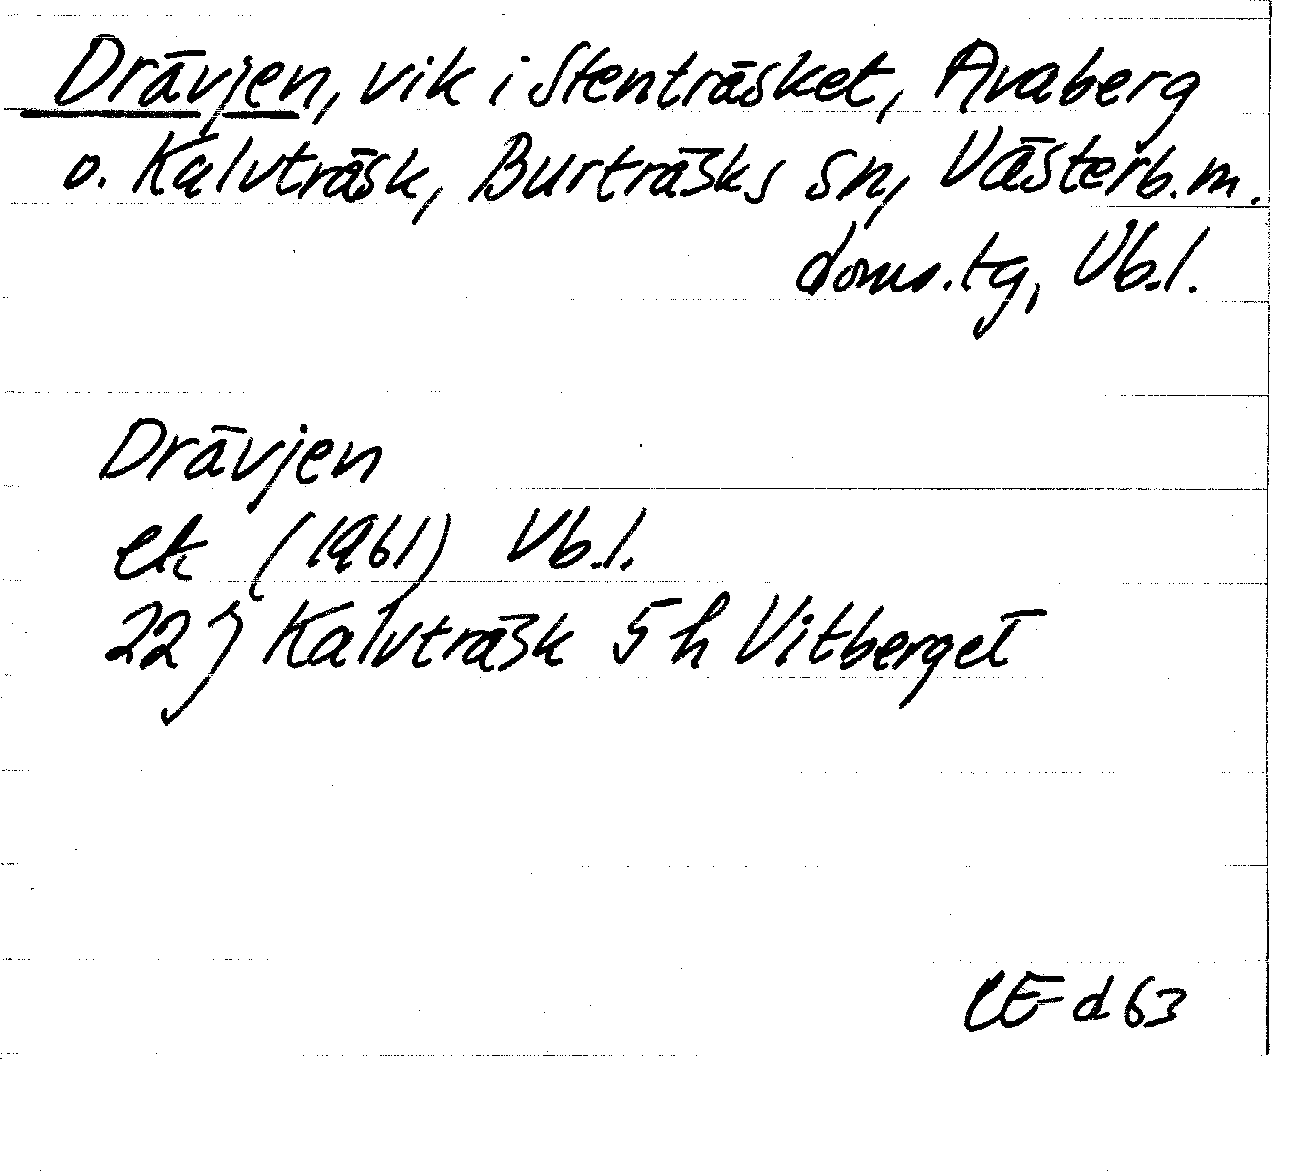 Drävjen, vik i Stenträsket, Avaberg
o. Kalvträsk, Burträsks sn, Västerb.m.
doms.tg, Vb.l.
Drävjen
ek (1961) Vb.l.
22 J Kalvträsk 5 h Vitberget
CE-d 63